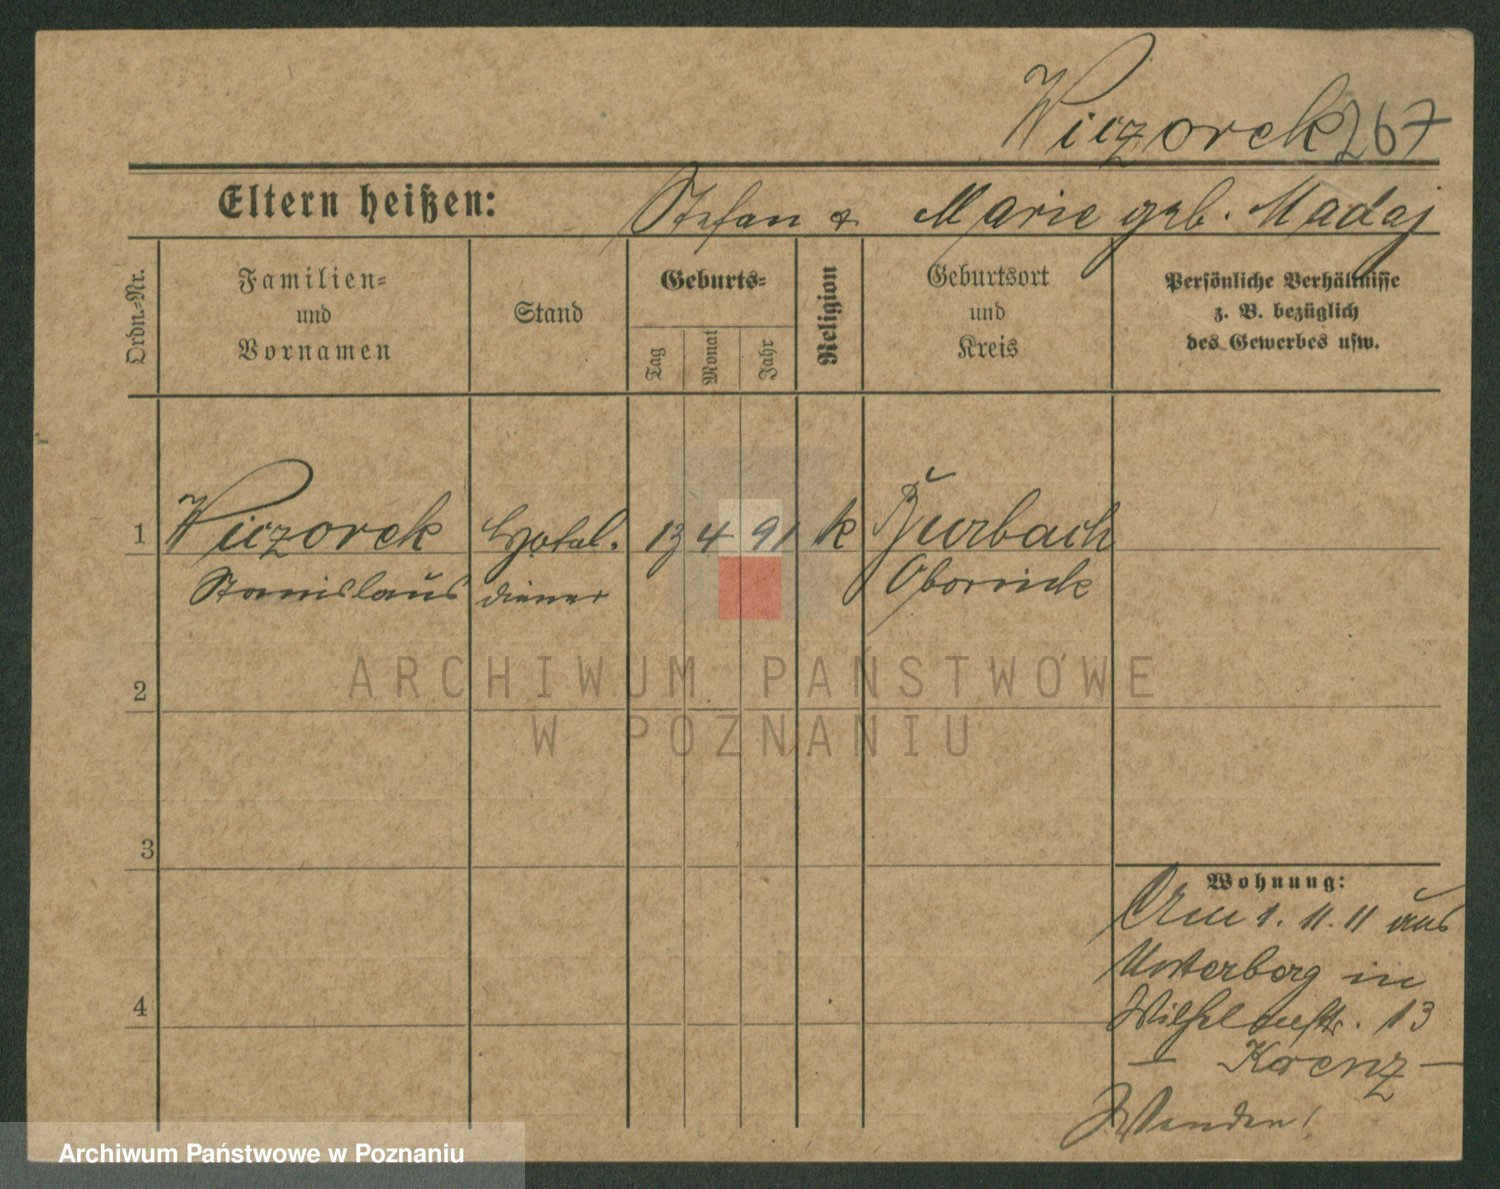 Wiczorek 267
Eltern heißen: Stefan & Marie geb. Madaj
Ordn.-Nr.
Familien-
und
Vornamen
Stand
Geburts-
Tag
Monat
Jahr
Religion
Geburtsort
und
Kreis
Persönliche Verhältnisse
z. B. bezüglich
des Gewerbes usw.
1 Wiczorek Hotel- 13 4 91 k Burbach
Stanislaus diener Obornick
ARCHIWUM PAŃSTWOWE
W POZNANIU
2
3
4
Wohnung:
Am 1. 11. 11 aus
Unterberg in
Wilhelmstr. 13
– Krenz –
Wenden!
Archiwum Państwowe w Poznaniu